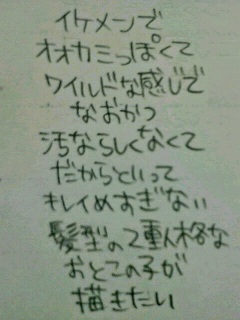 イケメンで
オオカミっぽくて
ワイルドな感じで
なおかつ
汚ならしくなくて
だからといって
キレイめすぎない
髪型の2重人格な
おとこの子が
描きたい